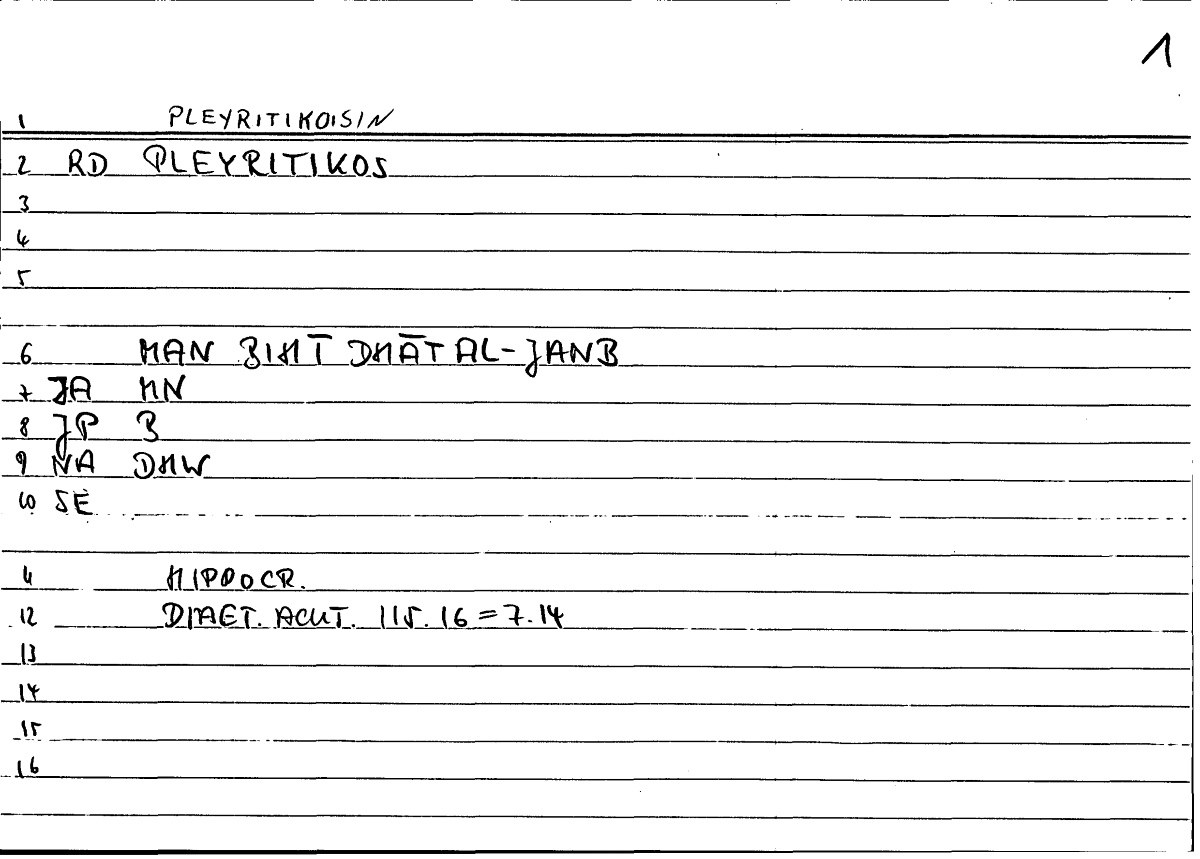 1
1 PLEYRITIKOISIN
2 RD PLEYRITIKOS
3
4
5
6 MAN BIHĪ DHĀT AL-JANB
7 JA MN
8 JP B
9 NA DHW
10 SE
11 HIPPOCR.
12 DIAET. ACUT. 115.16 = 7.14
13
14
15
16